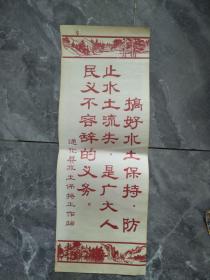 搞好水土保持·防
止水土流失·是广大人
民义不容辞的义务。
通化县水土保持工作站